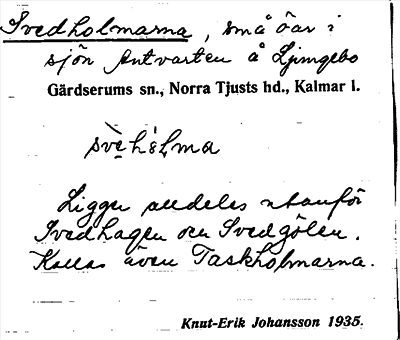 Svedholmarna, små öar i
sjön Antvarten å Ljungebo
Gärdserums sn., Norra Tjusts hd., Kalmar l.
Ligger alldeles utanför
Svedhagen och Svedgölen.
Kallas även Taskholmarna.
Knut-Erik Johansson 1935.